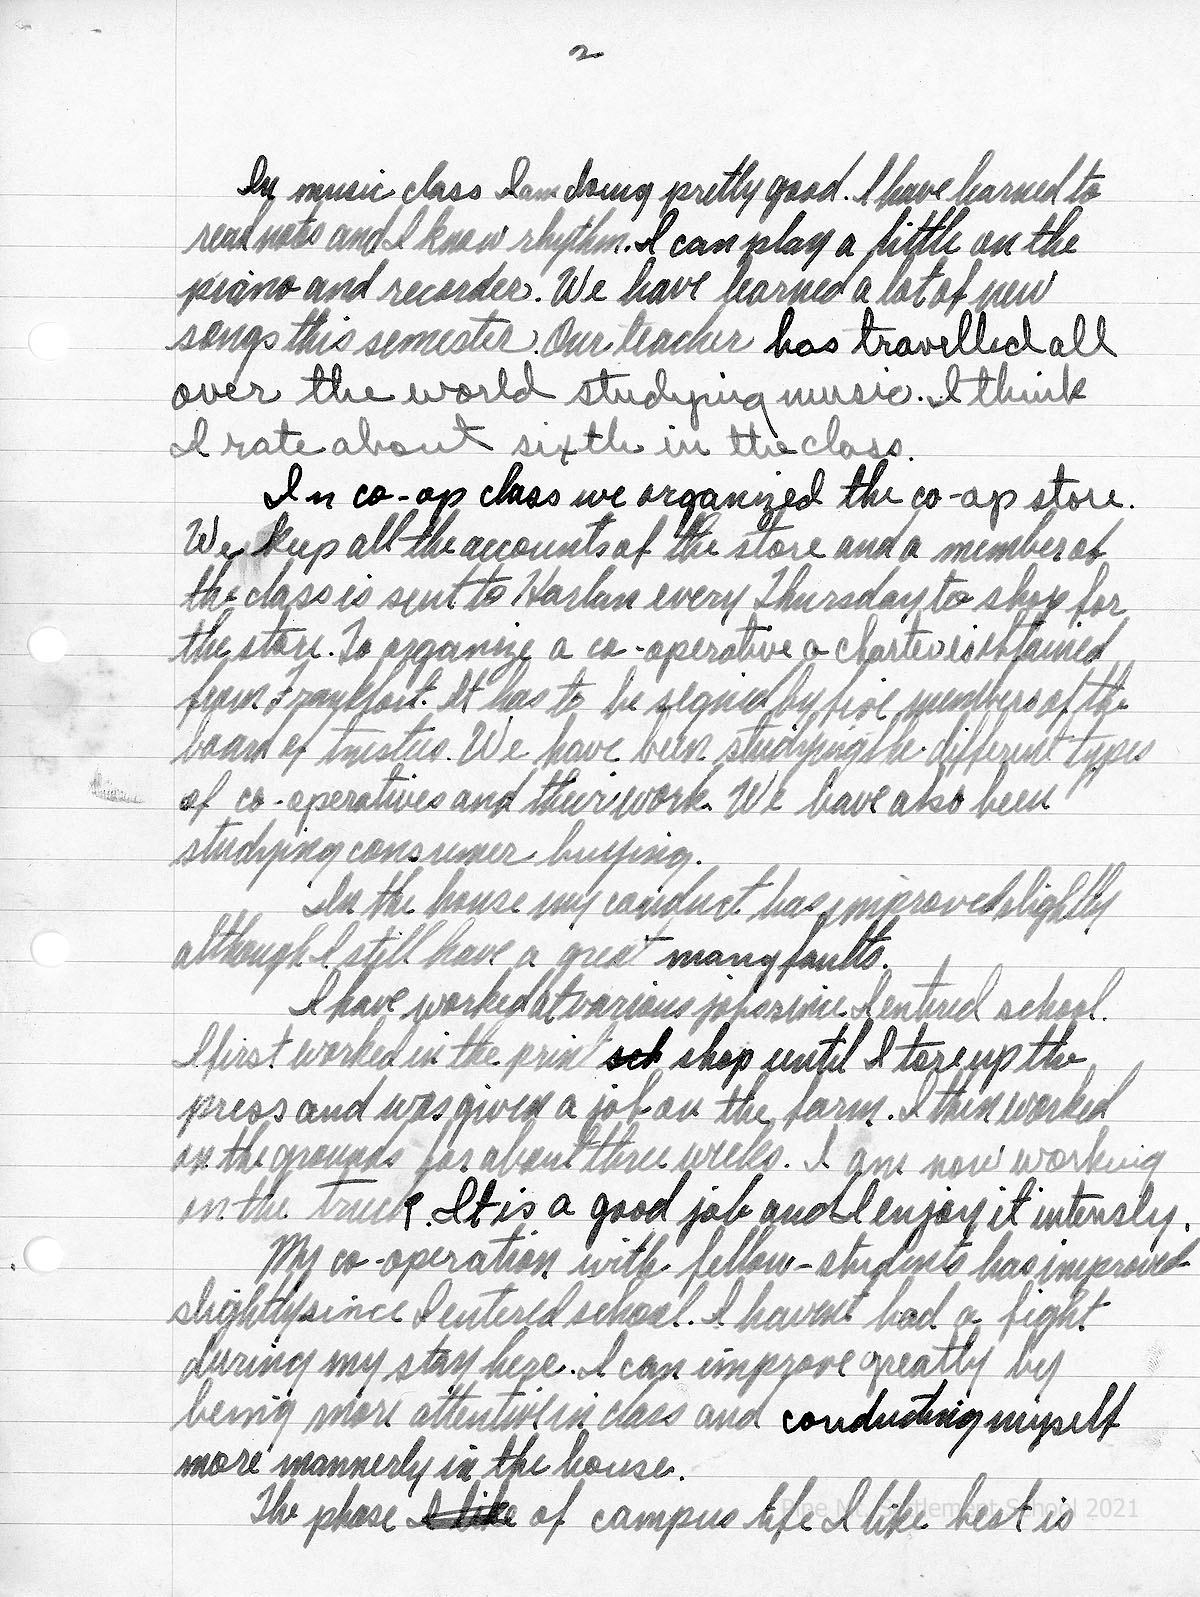 2
In music class I am doing pretty good. I have learned to
read notes and I know rhythm. I can play a little on the
piano and recorder. We have learned a lot of new
songs this semester. Our teacher has travelled all
over the world studying music. I think
I rate about sixth in the class.
In co-op class we organized the co-op store.
We keep all the accounts of the store and a member of
the class is sent to Harlan every Thursday to shop for
the store. To organize a co-operative a charter is obtained
from Frankfort. It has to be signed by five members of the
board of trustees. We have been studying the different types
of co-operatives and their work. We have also been
studying consumer buying.
In the house my conduct has improved slightly
although I still have a great many faults.
I have worked at various jobs since I entered school.
I first worked in the print sch shop until I tore up the
press and was given a job on the farm. I then worked
on the grounds for about three weeks. I am now working
on the truck. It is a good job and I enjoy it intensly.
My co-operation with fellow-students has improved
slightly since I entered school. I havent had a fight
during my stay here. I can improve greatly by
being more attentive in class and conducting myself
more mannerly in the house.
The phase I like of campus life I like best is
Pine Mt. Settlement School 2021